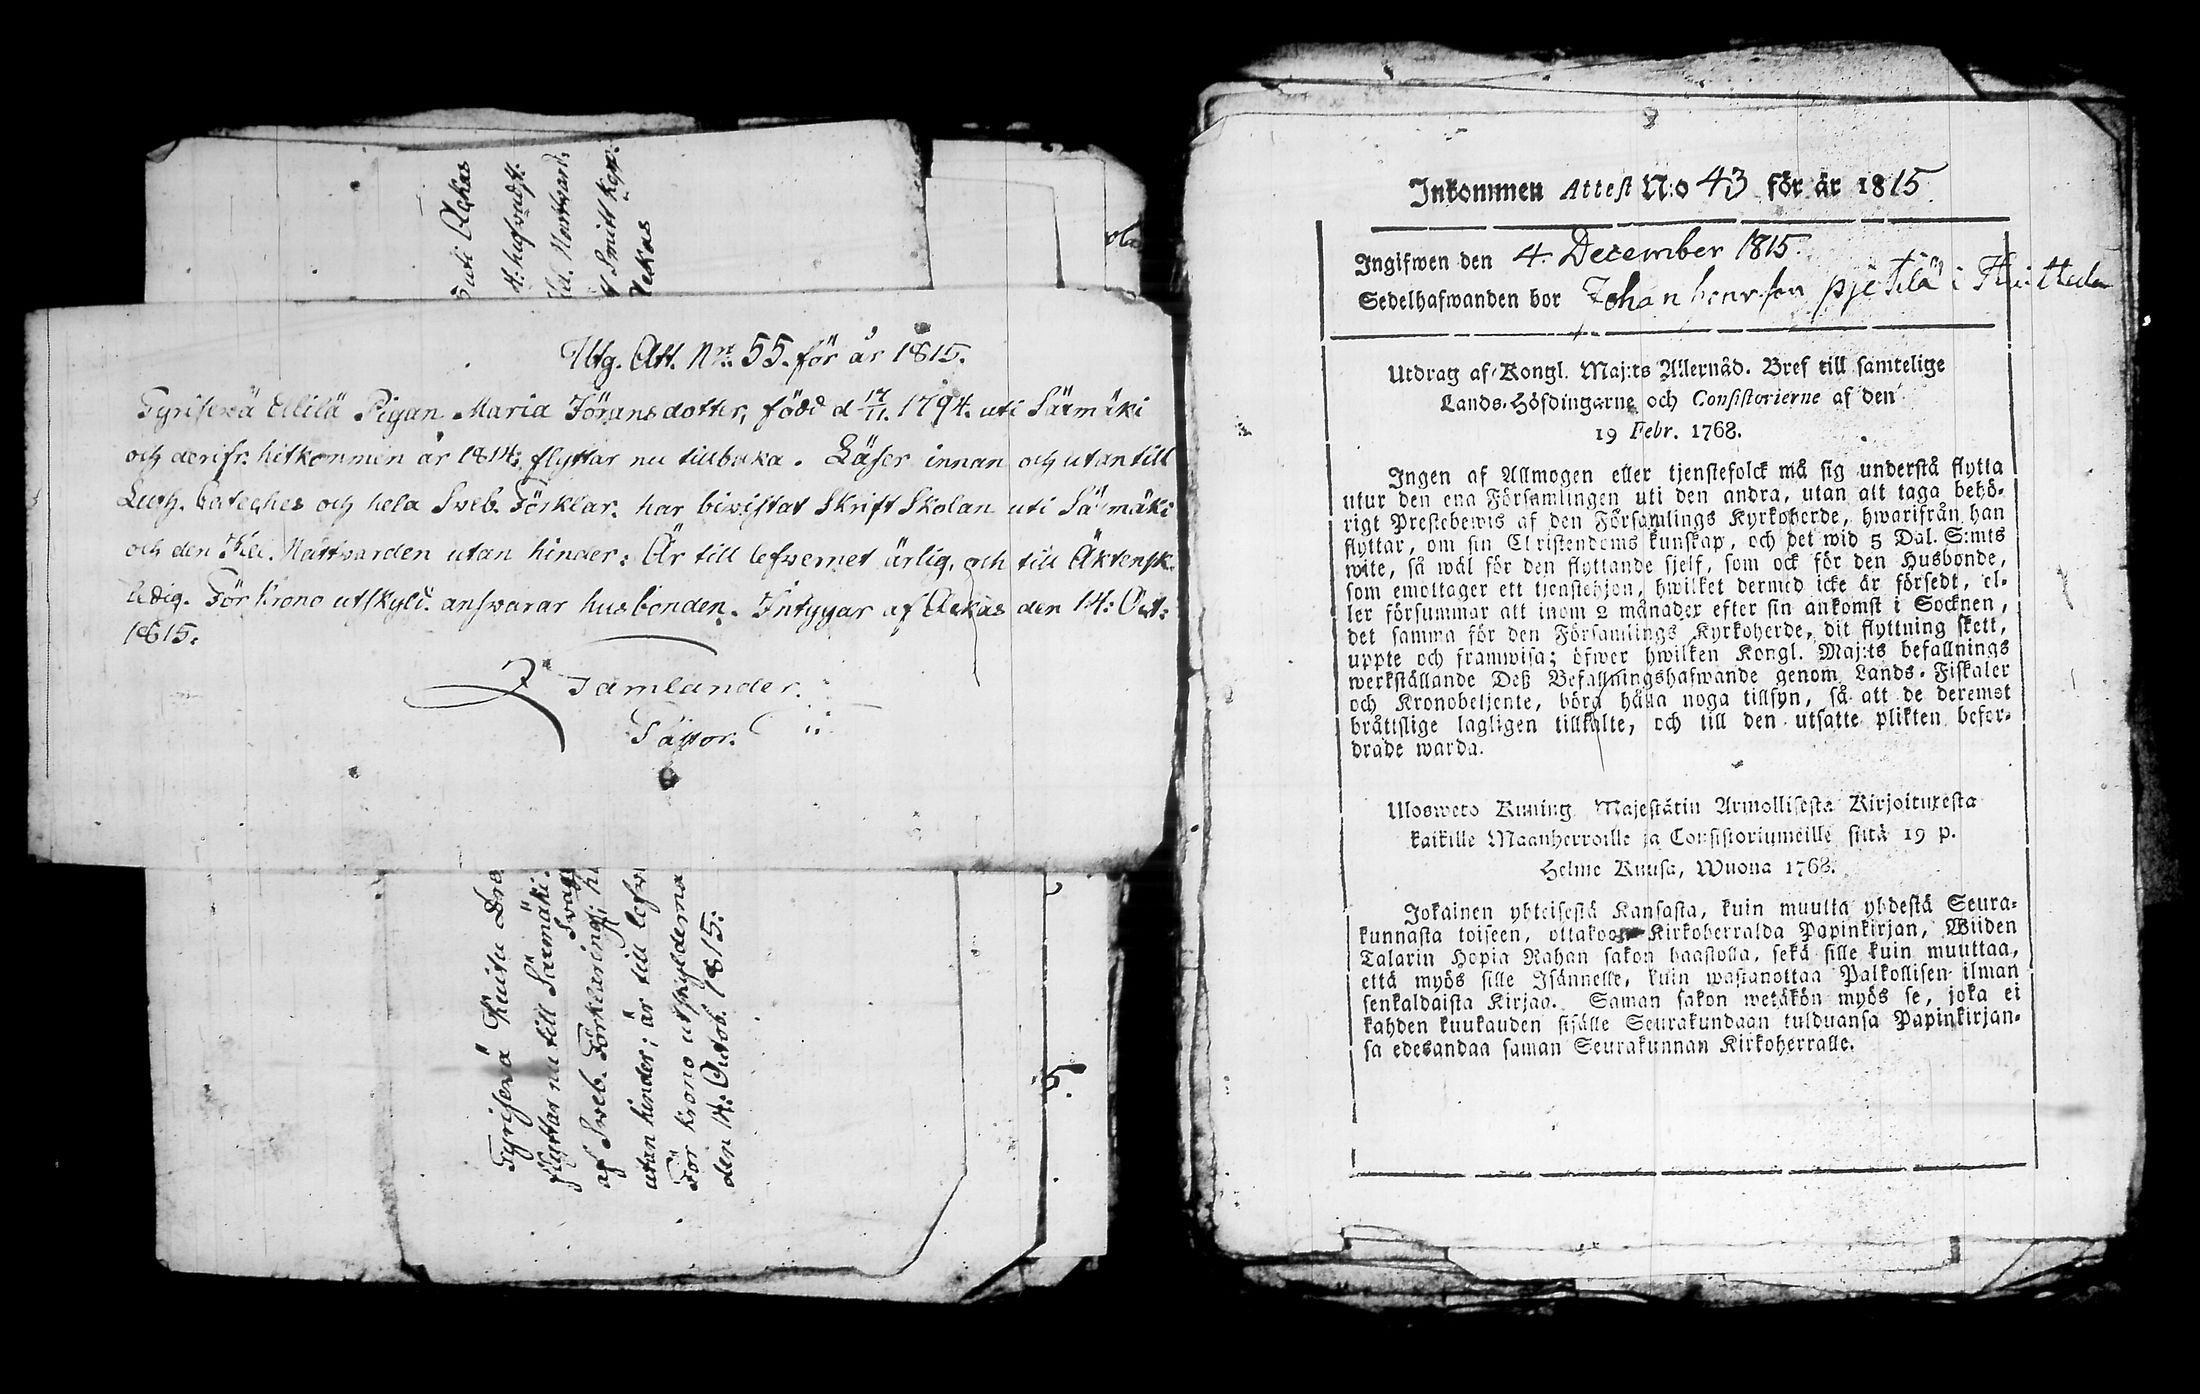 Säti Ackas
H: hufvudst.
Hel. Nattvard.
Smitt Kopp.
Ackas
Utg. Att. Nr: 55. för år 1815.
Tyrisevä Ulilä Pigan Maria Jöransdotter, född d 17/11. 1794. uti Särmäki
och derifr: hitkommen år 1814: flyttar nu tillbaka. Läser innan och utantill
Luth. Cateches och hela Sveb. Förklar: har biwistat Skrift Skolan uti Särmäki
och den Hel. Nattvarden utan hinder: Är till lefvernet ärlig, och till Äktensk.
ledig. För Krono utskyld. answarar husbonden. Intygar af Ackas den 14: Oct:
1815.
Tamlander.
Pastor.
Tyrisevä Kuitu Dre
flyttar nu till Särmäki.
af Sveb. Förklaring; h
utan hinder; är till lefv
För Krono utskylderna
den 14: Octob. 1815:
Inkommen Attest N:o 43 för år 1815
Ingifwen den 4. December 1815.
Sedelhafwanden bor Johan henr:son pjetilä i Huittula
Utdrag af Kongl. Maj:ts Allernåd. Bref till samtelige
Lands-Höfdingarne och Consistorierne af den
19 Febr. 1768.
Ingen af Allmogen eller tjenstefolck må sig understå flytta
utur den ena Församlingen uti den andra, utan att taga behö-
rigt Prestebewis af den Församlings Kyrkoherde, hwarifrån han
flyttar, om sin Christendoms kunskap, och det wid 5 Dal. S:mts
wite, så wäl för den flyttande sjelf, som ock för den Husbonde,
som emottager ett tjenstehjon, hwilket dermed icke är försedt, el-
ler försummar att inom 2 månader efter sin ankomst i Socknen,
det samma för den Församlings Kyrkoherde, dit flyttning skett,
uppte och framwisa; öfwer hwilken Kongl. Maj:ts befallnings
werkställande Deß Befallningshafwande genom Lands-Fiskaler
och Kronobetjente, böra hålla noga tillsyn, så att de deremot
bråttslige lagligen tillkalte, och till den utsatte plikten befor-
drade warda.
Ulosweto Kuning. Majestätin Armollisesta Kirjoituxesta
kaikille Maanherroille ja Consistoriumeille siitä 19 p.
Helme Kuusa, Wuona 1768.
Jokainen yhteisestä Kansasta, kuin muutta yhdestä Seura-
kunnasta toiseen, ottakoon Kirkoherralda Papinkirjan, Wiiden
Talarin Hopia Rahan sakon haastolla, sekä sille kuin muuttaa,
että myös sille Isännelle, kuin wastanottaa Palkollisen ilman
senkaldaista Kirjaa. Saman sakon wetäkön myös se, joka ei
kahden kuukauden sisälle Seurakundaan tulduansa Papinkirjan-
sa edesandaa saman Seurakunnan Kirkoherralle.